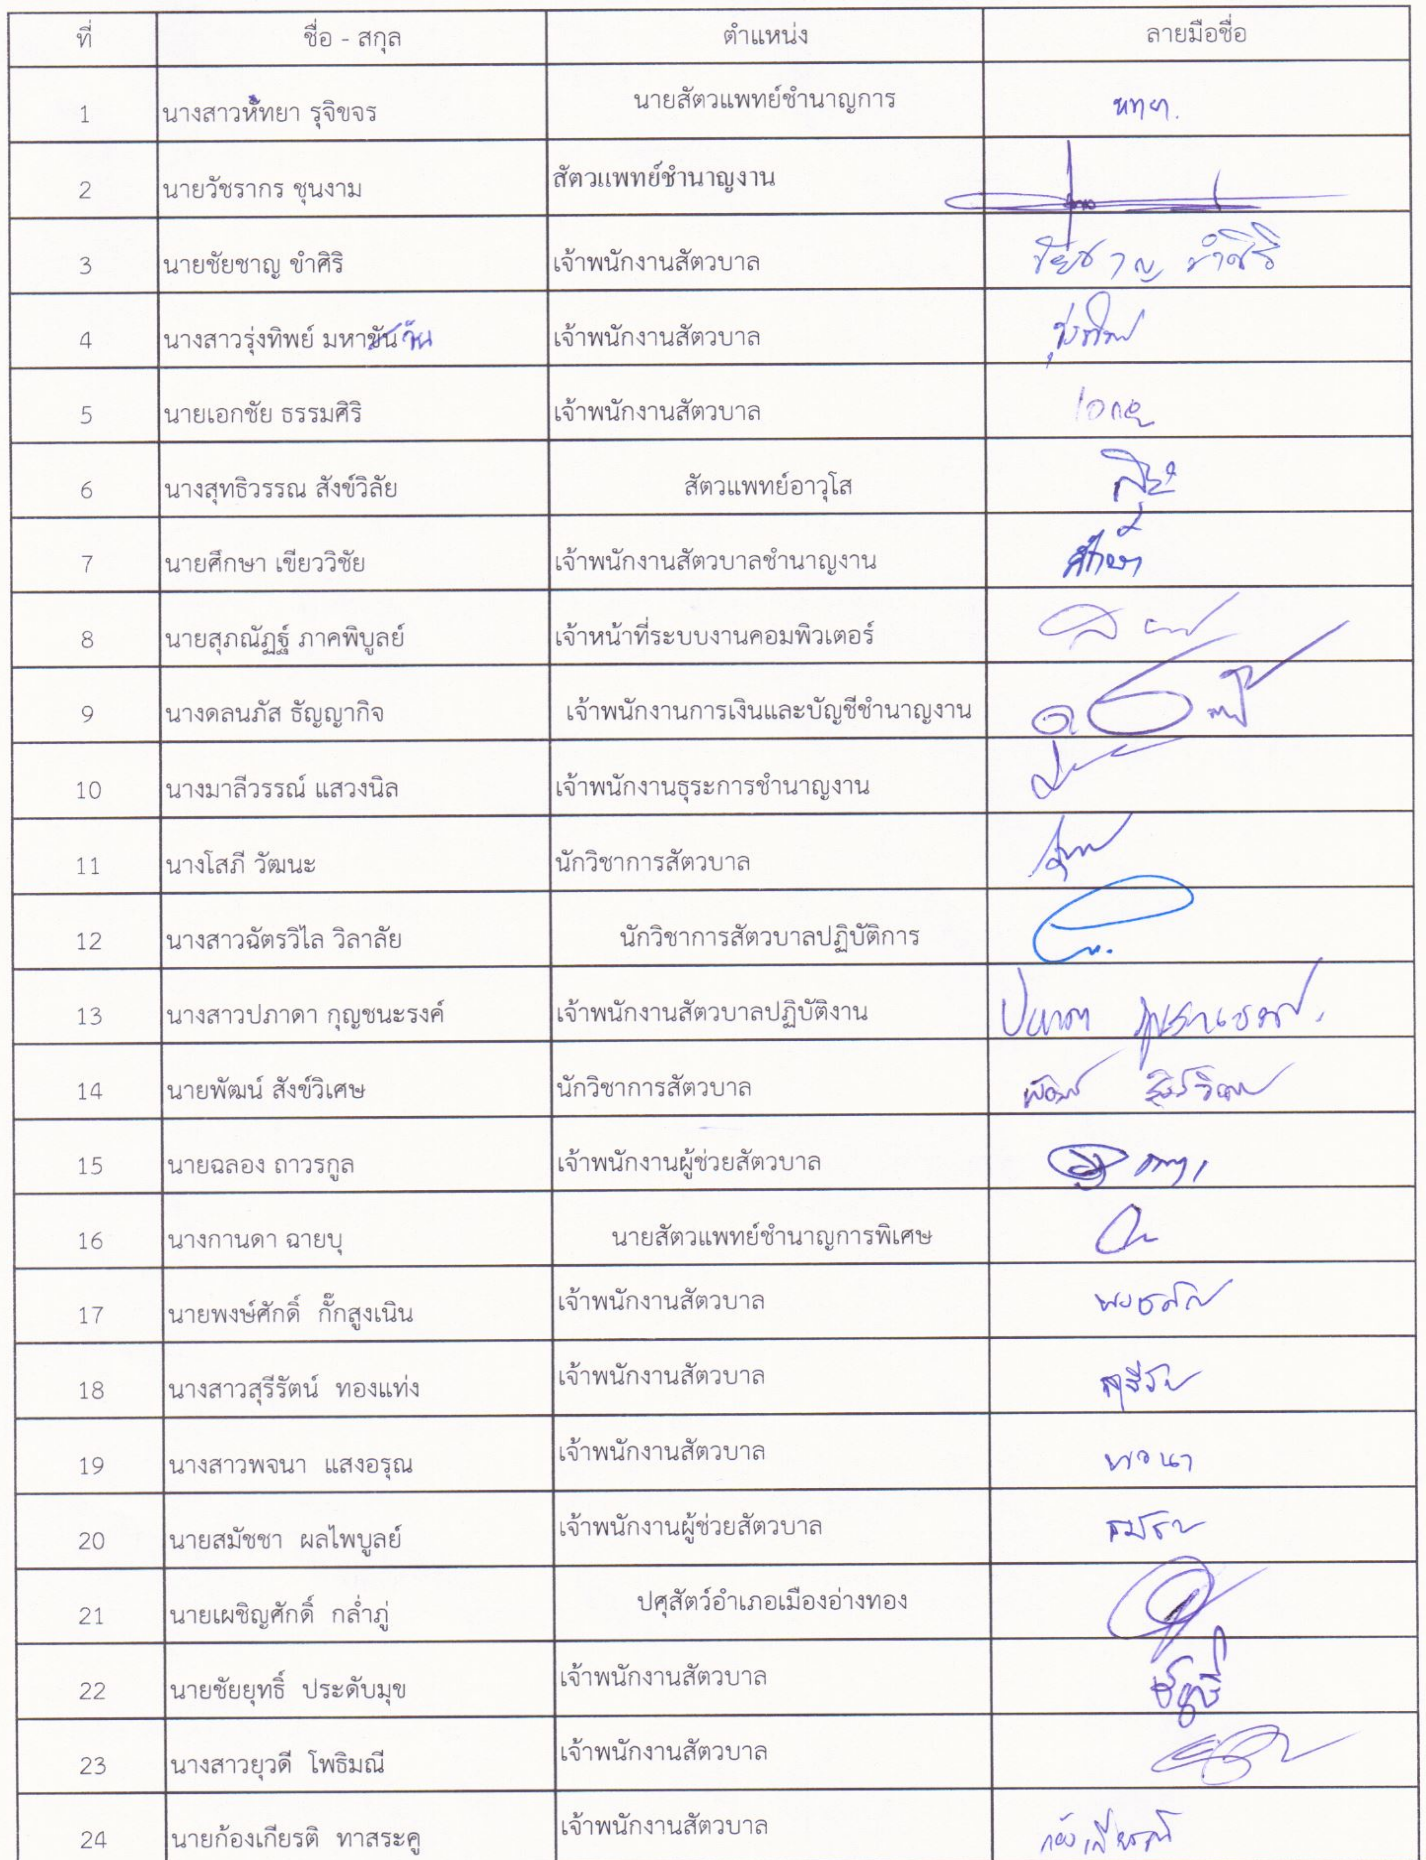 ที่ ชื่อ - สกุล ตำแหน่ง ลายมือชื่อ
1 นางสาวหทยา รุจิขจร นายสัตวแพทย์ชำนาญการ หทยา.
2 นายวัชรากร ชุนงาม สัตวแพทย์ชำนาญงาน
3 นายชัยชาญ ขำศิริ เจ้าพนักงานสัตวบาล ชัยชาญ ขำศิริ
4 นางสาวรุ่งทิพย์ มหาขันวัน เจ้าพนักงานสัตวบาล รุ่งทิพย์
5 นายเอกชัย ธรรมศิริ เจ้าพนักงานสัตวบาล
6 นางสุทธิวรรณ สังข์วิลัย สัตวแพทย์อาวุโส
7 นายศึกษา เขียววิชัย เจ้าพนักงานสัตวบาลชำนาญงาน ศึกษา
8 นายสุภณัฏฐ์ ภาคพิบูลย์ เจ้าหน้าที่ระบบงานคอมพิวเตอร์
9 นางดลนภัส ธัญญากิจ เจ้าพนักงานการเงินและบัญชีชำนาญงาน
10 นางมาลีวรรณ์ แสวงนิล เจ้าพนักงานธุระการชำนาญงาน
11 นางโสภี วัฒนะ นักวิชาการสัตวบาล
12 นางสาวฉัตรวิไล วิลาลัย นักวิชาการสัตวบาลปฏิบัติการ
13 นางสาวปภาดา กุญชนะรงค์ เจ้าพนักงานสัตวบาลปฏิบัติงาน ปภาดา กุญชนะรงค์
14 นายพัฒน์ สังข์วิเศษ นักวิชาการสัตวบาล พัฒน์ สังข์วิเศษ
15 นายฉลอง ถาวรกูล เจ้าพนักงานผู้ช่วยสัตวบาล
16 นางกานดา ฉายบุ นายสัตวแพทย์ชำนาญการพิเศษ
17 นายพงษ์ศักดิ์ กั๊กสูงเนิน เจ้าพนักงานสัตวบาล
18 นางสาวสุรีรัตน์ ทองแท่ง เจ้าพนักงานสัตวบาล
19 นางสาวพจนา แสงอรุณ เจ้าพนักงานสัตวบาล พจนา
20 นายสมัชชา ผลไพบูลย์ เจ้าพนักงานผู้ช่วยสัตวบาล
21 นายเผชิญศักดิ์ กล่ำภู่ ปศุสัตว์อำเภอเมืองอ่างทอง
22 นายชัยยุทธิ์ ประดับมุข เจ้าพนักงานสัตวบาล
23 นางสาวยุวดี โพธิมณี เจ้าพนักงานสัตวบาล
24 นายก้องเกียรติ ทาสระคู เจ้าพนักงานสัตวบาล ก้องเกียรติ